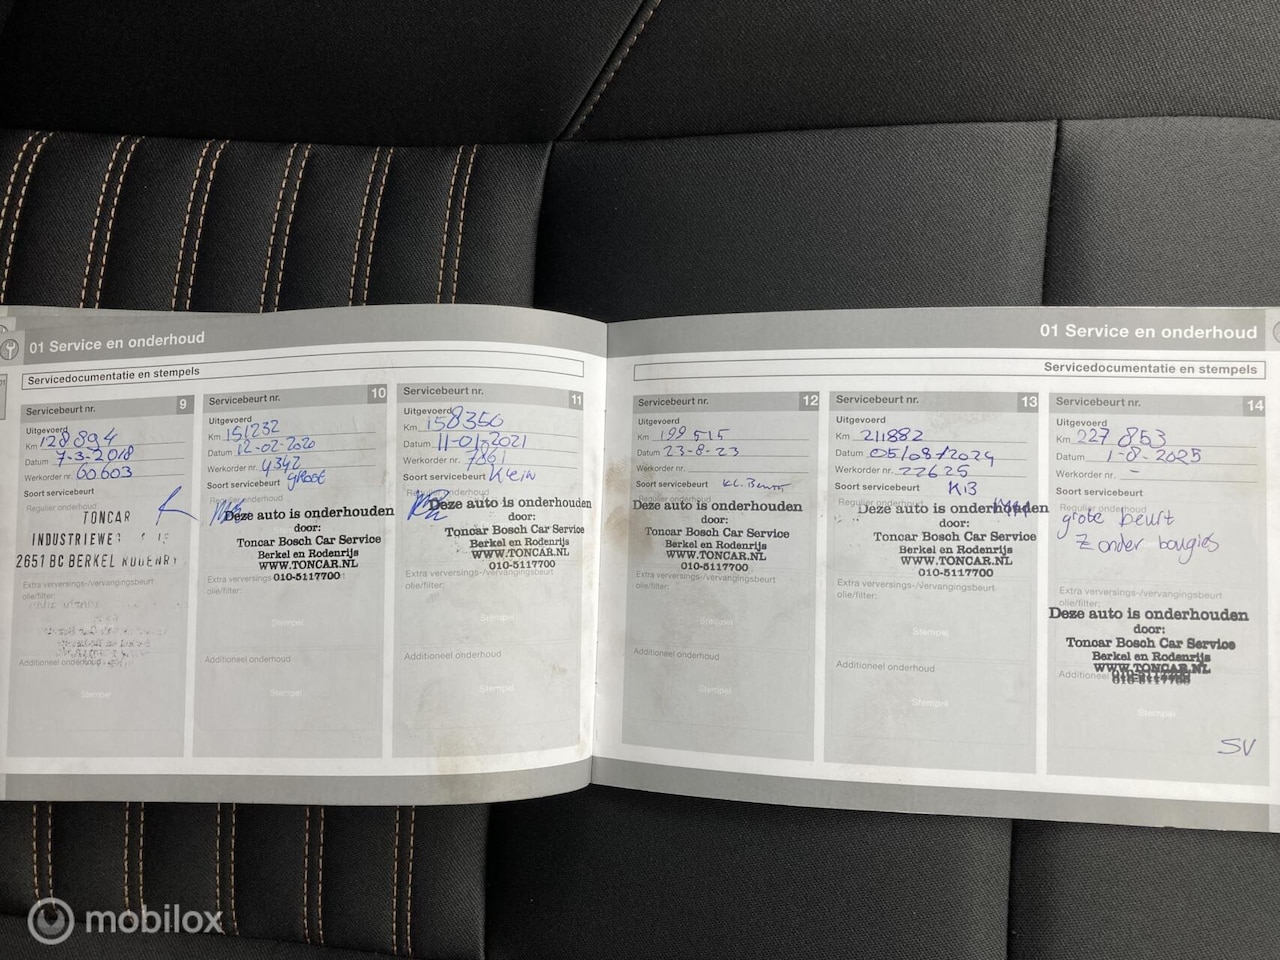 01 Service en onderhoud
Servicedocumentatie en stempels
Servicebeurt nr. 9
Uitgevoerd
Km 128894
Datum 7-3-2018
Werkorder nr. 60603
Soort servicebeurt
Regulier onderhoud
TONCAR
INDUSTRIEWE
2651 BC BERKEL RODENRY
Extra verversings-/vervangingsbeurt
olie/filter:
Additioneel onderhoud
Stempel
Servicebeurt nr. 10
Uitgevoerd
Km 151232
Datum 12-02-2020
Werkorder nr. 4342
Soort servicebeurt groot
Regulier onderhoud
Deze auto is onderhouden
door:
Toncar Bosch Car Service
Berkel en Rodenrijs
WWW.TONCAR.NL
010-5117700
Extra verversings
olie/filter:
Stempel
Additioneel onderhoud
Stempel
Servicebeurt nr. 11
Uitgevoerd
Km 158350
Datum 11-01-2021
Werkorder nr. 7861
Soort servicebeurt Klein
Deze auto is onderhouden
door:
Toncar Bosch Car Service
Berkel en Rodenrijs
WWW.TONCAR.NL
010-5117700
Extra verversings-/vervangingsbeurt
olie/filter:
Stempel
Additioneel onderhoud
Stempel
01 Service en onderhoud
Servicedocumentatie en stempels
Servicebeurt nr. 12
Uitgevoerd
Km 199515
Datum 23-8-23
Werkorder nr.
Soort servicebeurt kl. Beurt
Regulier onderhoud
Deze auto is onderhouden
door:
Toncar Bosch Car Service
Berkel en Rodenrijs
WWW.TONCAR.NL
010-5117700
Extra verversings-/vervangingsbeurt
olie/filter:
Stempel
Additioneel onderhoud
Stempel
Servicebeurt nr. 13
Uitgevoerd
Km 211882
Datum 05/08/2024
Werkorder nr. 22625
Soort servicebeurt KB
Regulier onderhoud
Deze auto is onderhouden
door:
Toncar Bosch Car Service
Berkel en Rodenrijs
WWW.TONCAR.NL
010-5117700
Extra verversings-/vervangingsbeurt
olie/filter:
Stempel
Additioneel onderhoud
Stempel
Servicebeurt nr. 14
Uitgevoerd
Km 227 853
Datum 1-8-2025
Werkorder nr. -
Soort servicebeurt
Regulier onderhoud
grote beurt
zonder bougies
Extra verversings-/vervangingsbeurt
olie/filter:
Deze auto is onderhouden
door:
Toncar Bosch Car Service
Berkel en Rodenrijs
WWW.TONCAR.NL
010-5117700
Additioneel
Stempel
SV
mobilox